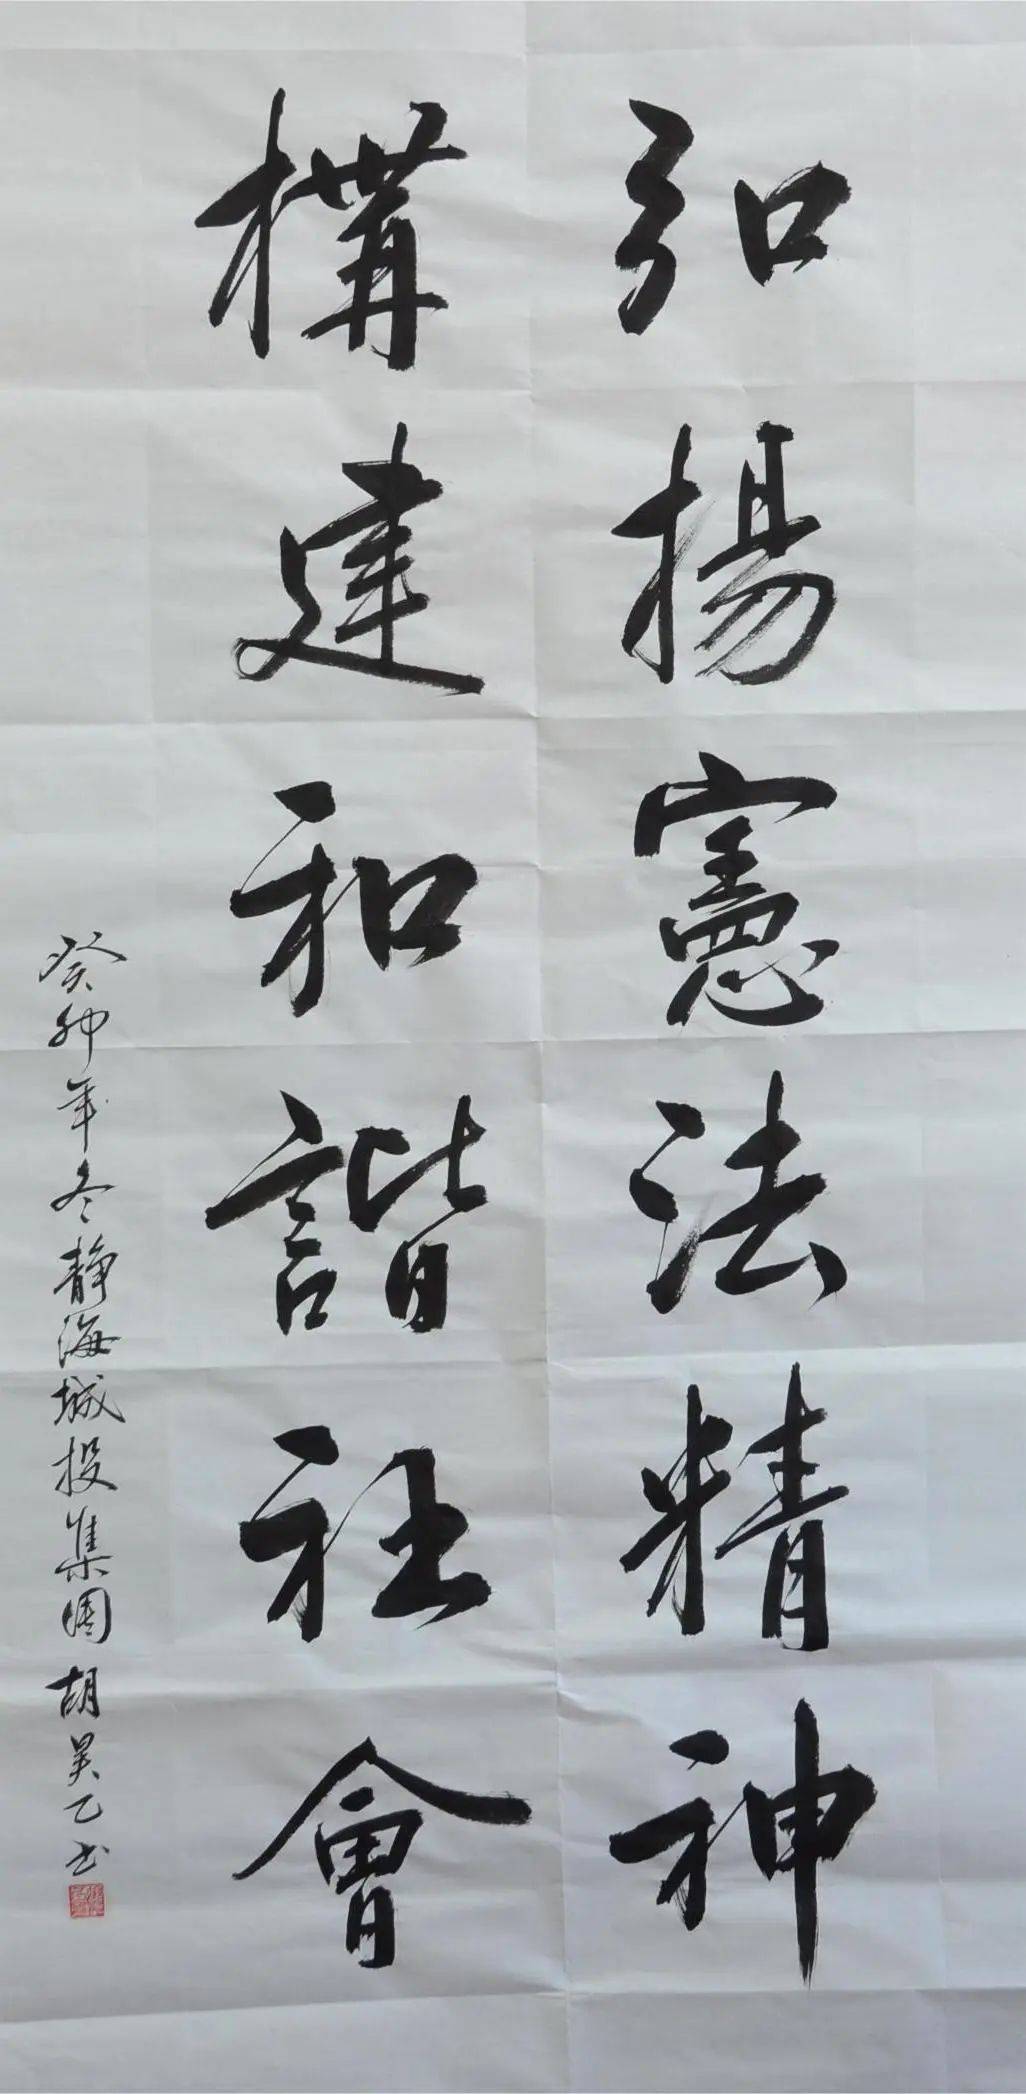 弘揚憲法精神
構建和諧社會
癸卯年冬静海城投集团胡昊乙书